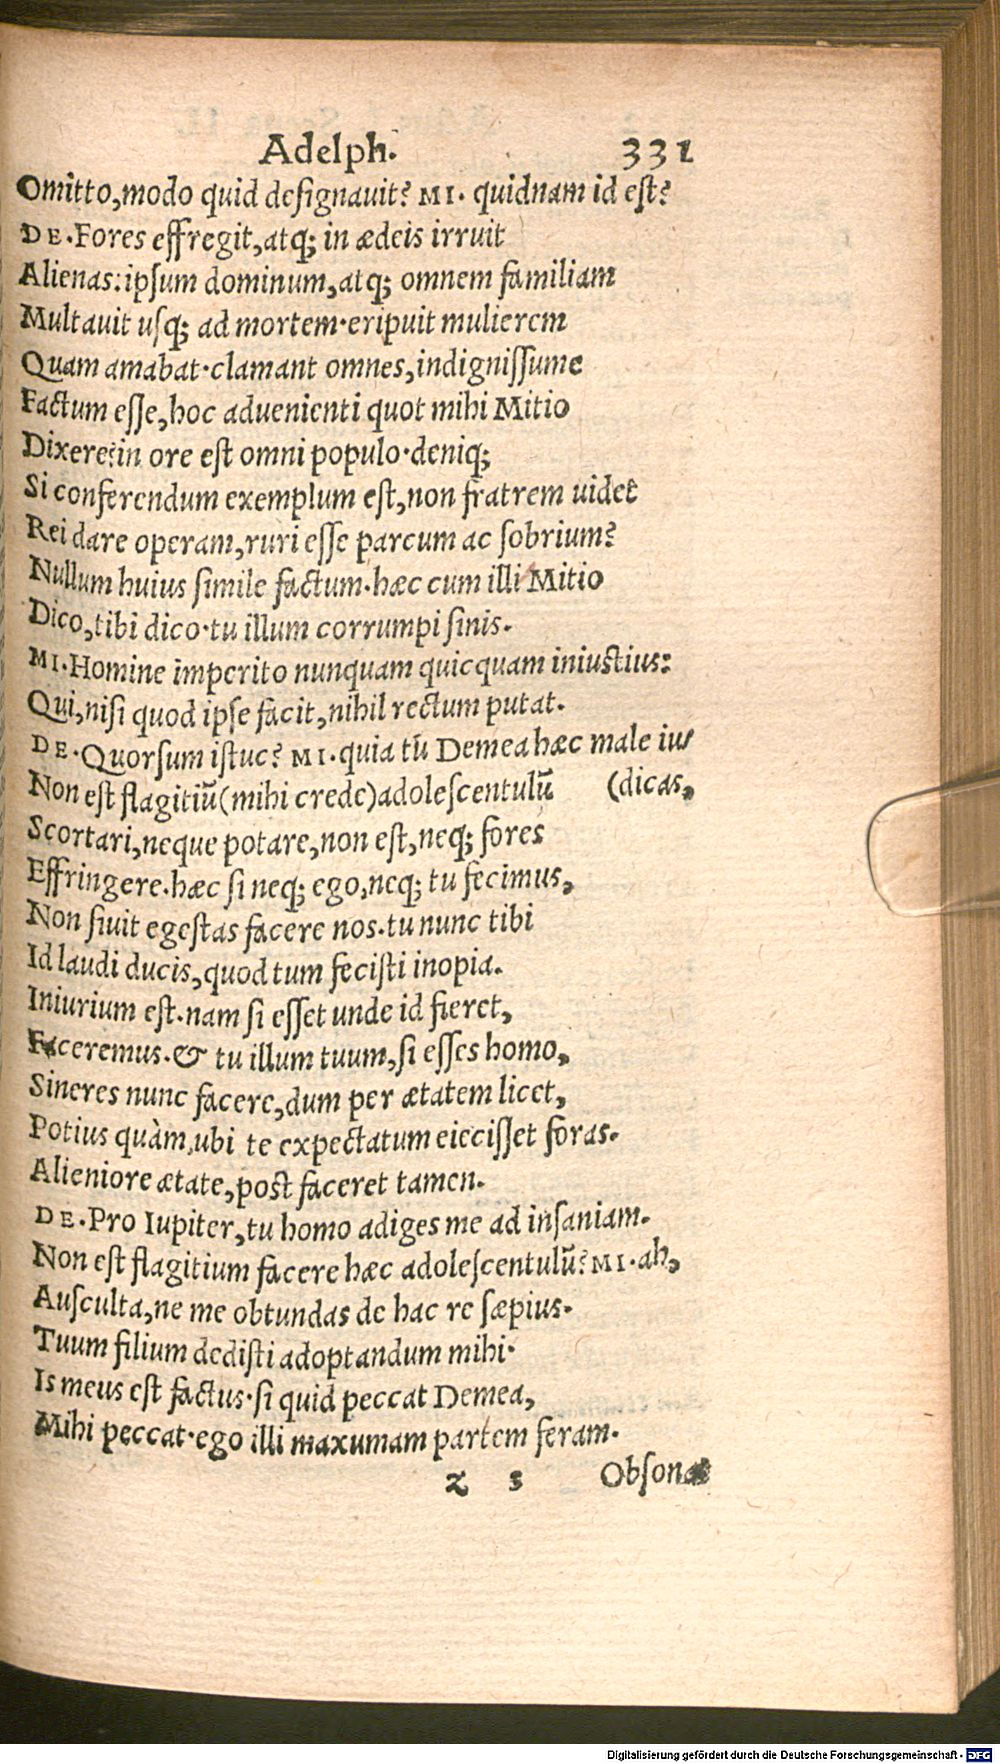 Adelph. 331
Omitto,modo quid designavit? MI. quidnam id est?
DE.Fores effregit,atq; in ædeis irruit
Alienas:ipsum dominum,atq; omnem familiam
Multavit usq; ad mortem.eripuit mulierem
Quam amabat.clamant omnes,indignissume
Factum esse,hoc advenienti quot mihi Mitio
Dixere?in ore est omni populo.deniq;
Si conferendum exemplum est,non fratrem videt
Rei dare operam,ruri esse parcum ac sobrium?
Nullum huius simile factum.hæc cum illi Mitio
Dico,tibi dico.tu illum corrumpi sinis.
MI.Homine imperito nunquam quicquam iniustius:
Qui,nisi quod ipse facit,nihil rectum putat.
DE.Quorsum istuc? MI.quia tu Demea hæc male iu
Non est flagitiũ(mihi crede)adolescentulũ (dicas,
Scortari,neque potare,non est,neq; fores
Effringere.hæc si neq; ego,neq; tu fecimus,
Non sivit egestas facere nos.tu nunc tibi
Id laudi ducis,quod tum fecisti inopia.
Iniurium est.nam si esset unde id fieret,
Faceremus.& tu illum tuum,si esses homo,
Sineres nunc facere,dum per ætatem licet,
Potius quàm,ubi te expectatum eiecisset foras.
Alieniore ætate,post faceret tamen.
DE.Pro Iupiter,tu homo adiges me ad insaniam.
Non est flagitium facere hæc adolescentulũ?MI.ah,
Ausculta,ne me obtundas de hac re sæpius.
Tuum filium dedisti adoptandum mihi.
Is meus est factus.si quid peccat Demea,
Mihi peccat.ego illi maxumam partem feram.
z 3 Obsonat
Digitalisierung gefördert durch die Deutsche Forschungsgemeinschaft - DFG